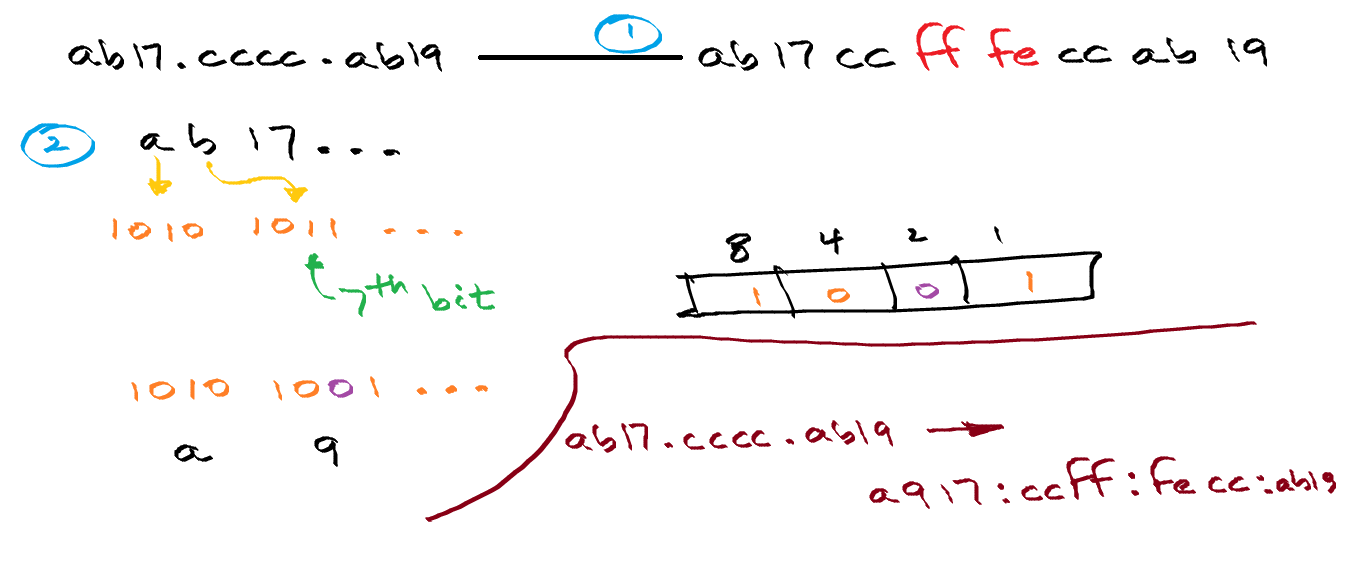 1
ab17.cccc.ab19 ab 17 cc ff fe cc ab 19
2 ab 17...
1010 1011 ...
7th bit
8 4 2 1
1 0 0 1
1010 1001 ...
a 9
ab17.cccc.ab19
a917:ccff:fecc:ab19